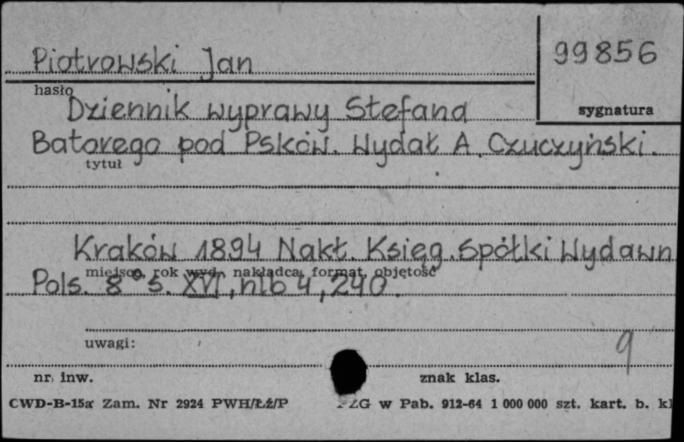 Piotrowski Jan
99856
hasło
sygnatura
Dziennik wyprawy Stefana
Batorego pod Psków. Wydał A. Czuczyński.
tytuł
Kraków 1894 Nakł. Księg. Spółki Wydawn
miejsce, rok wyd., nakładca, format, objętość
Pols. 8° s. XVI, nlb 4, 240.
uwagi:
9
nr. inw.
znak klas.
CWD-B-15a Zam. Nr 2924 PWH/Łź/P
ZG w Pab. 912-64 1 000 000 szt. kart. b. kl